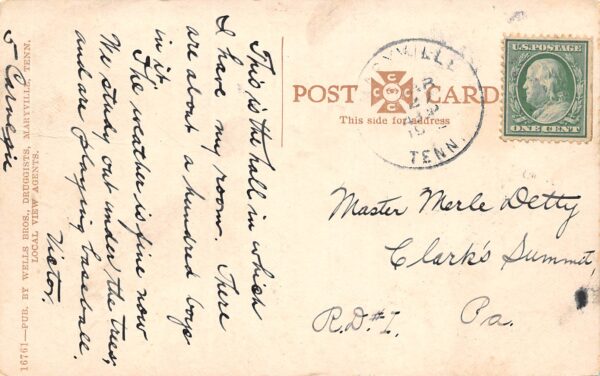 This is the hall in which
I have my room. There
are about a hundred boys
in it.
The weather is fine now
We study out under the trees,
and are playing baseball.
Victor.
5 Carnegie
16761—PUB. BY WELLS BROS., DRUGGISTS, MARYVILLE, TENN.
LOCAL VIEW AGENTS.
POST CARD
This side for address
MARYVILLE
TENN.
U.S. POSTAGE
ONE CENT
Master Merle Detty
Clark's Summit,
R.D.#1. Pa.